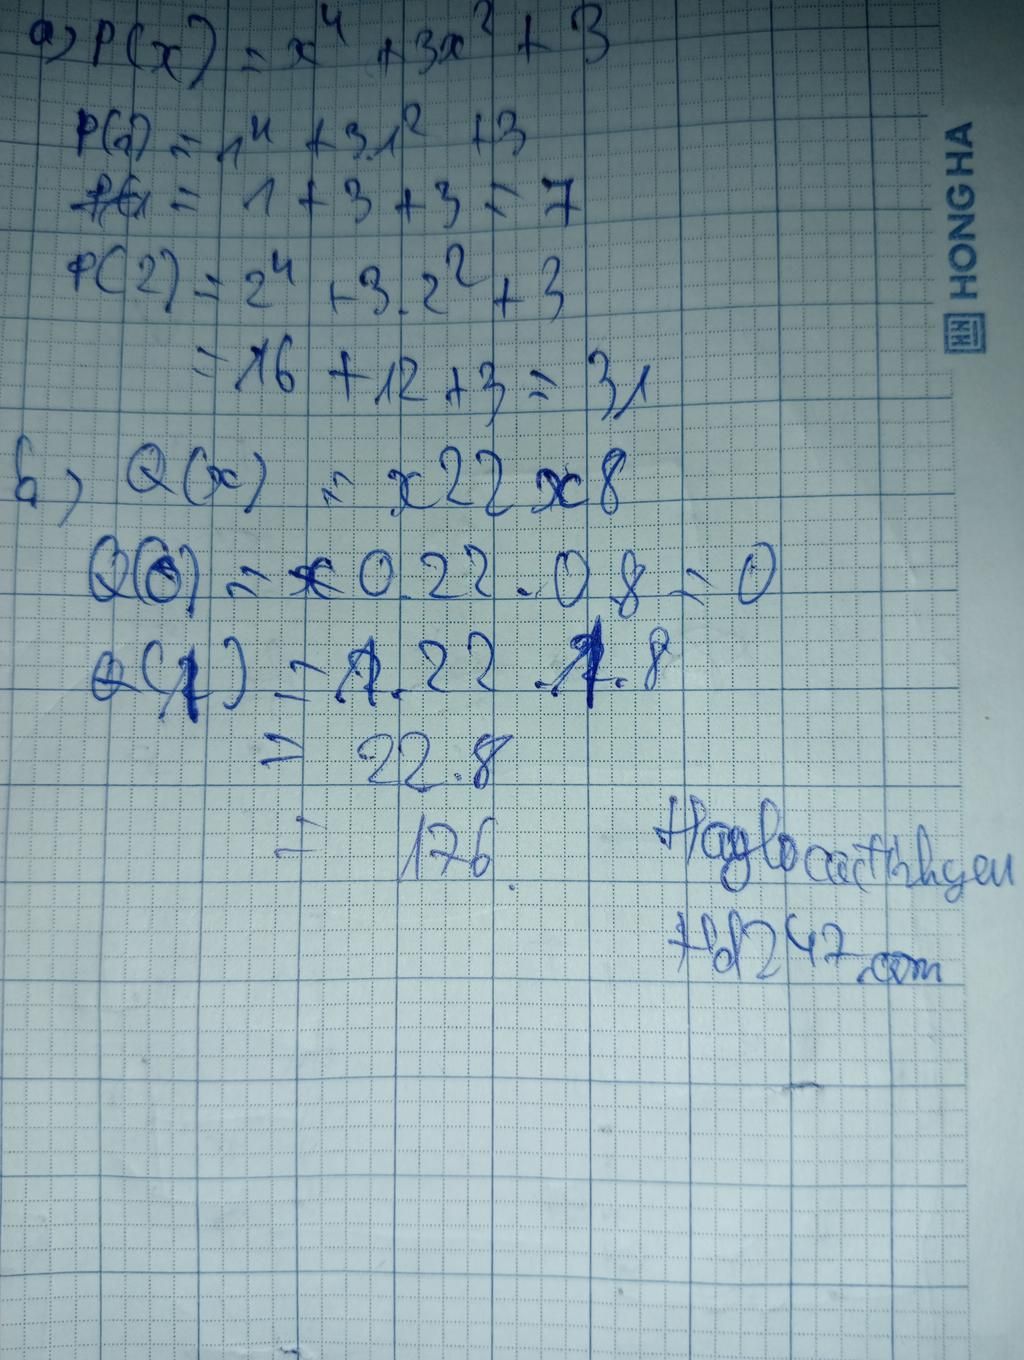 a) P(x) = x⁴ + 3x² + 3
P(1) = 1⁴ + 3.1² + 3
= 1 + 3 + 3 = 7
P(2) = 2⁴ + 3.2² + 3
= 16 + 12 + 3 = 31
b) Q(x) = x22x8
Q(0) = 0.22.0.8 = 0
Q(1) = 1.22.1.8
= 22.8
= 176.
Hd247.com
HONG HA